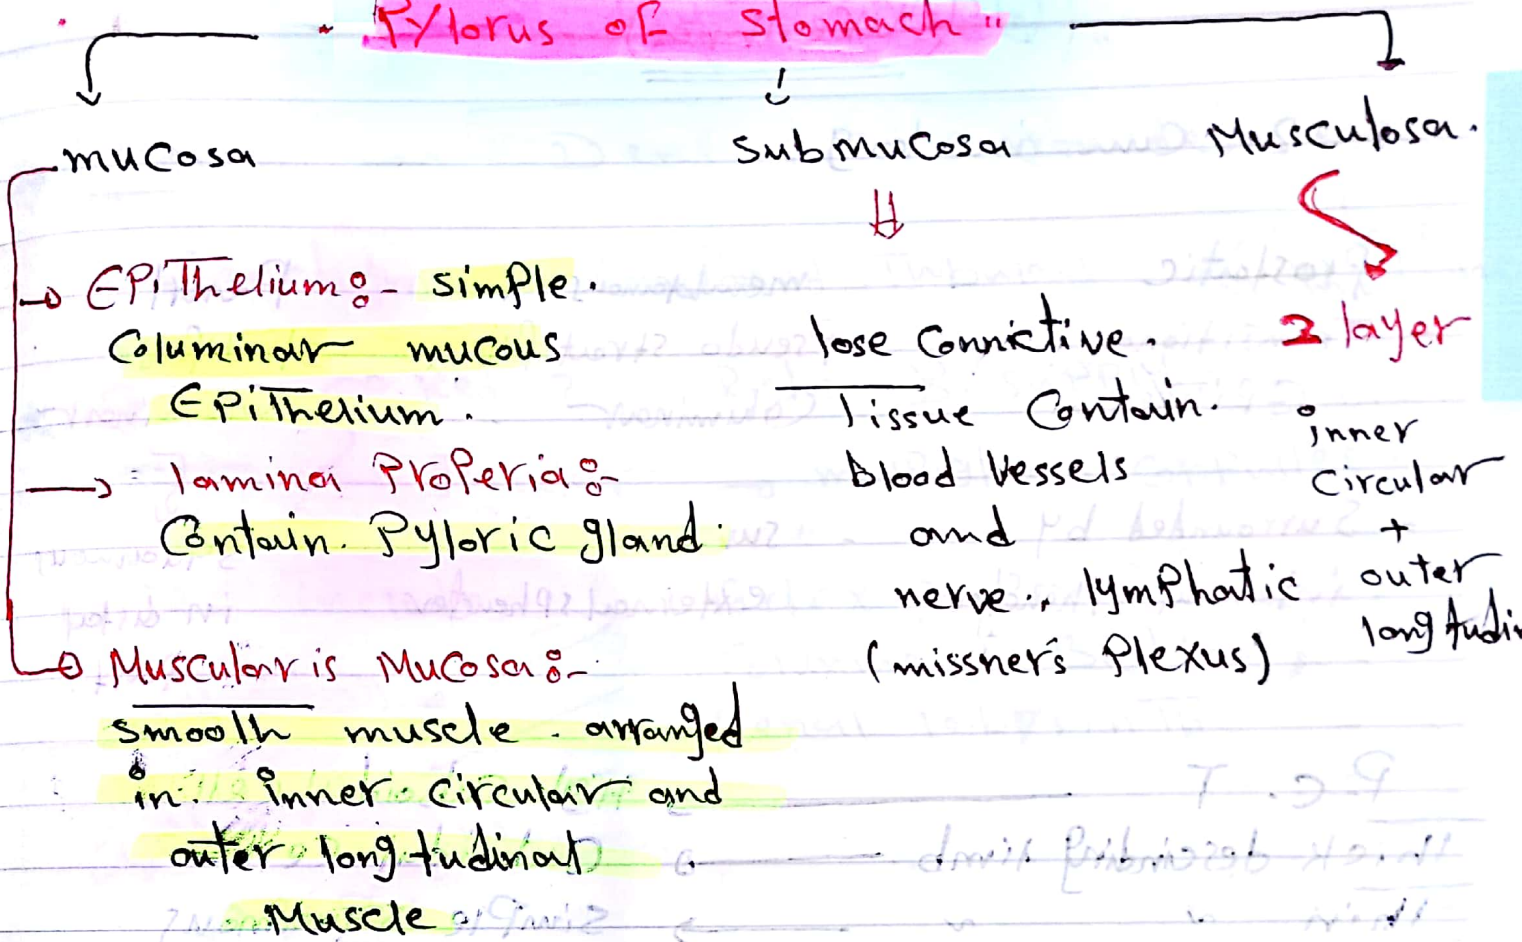 Pylorus of stomach "
mucosa
submucosa
Musculosa.
Epithelium:- simple.
Columinar mucous
Epithelium.
lamina Properia:-
Contain. Pyloric gland.
Muscularis Mucosa:-
smooth muscle. arranged
in. inner circular and
outer longitudinal
Muscle
lose Connictive.
Tissue Contain.
blood Vessels
and
nerve., lymphatic
(missner's Plexus)
2 layer
inner
Circular
+
outer